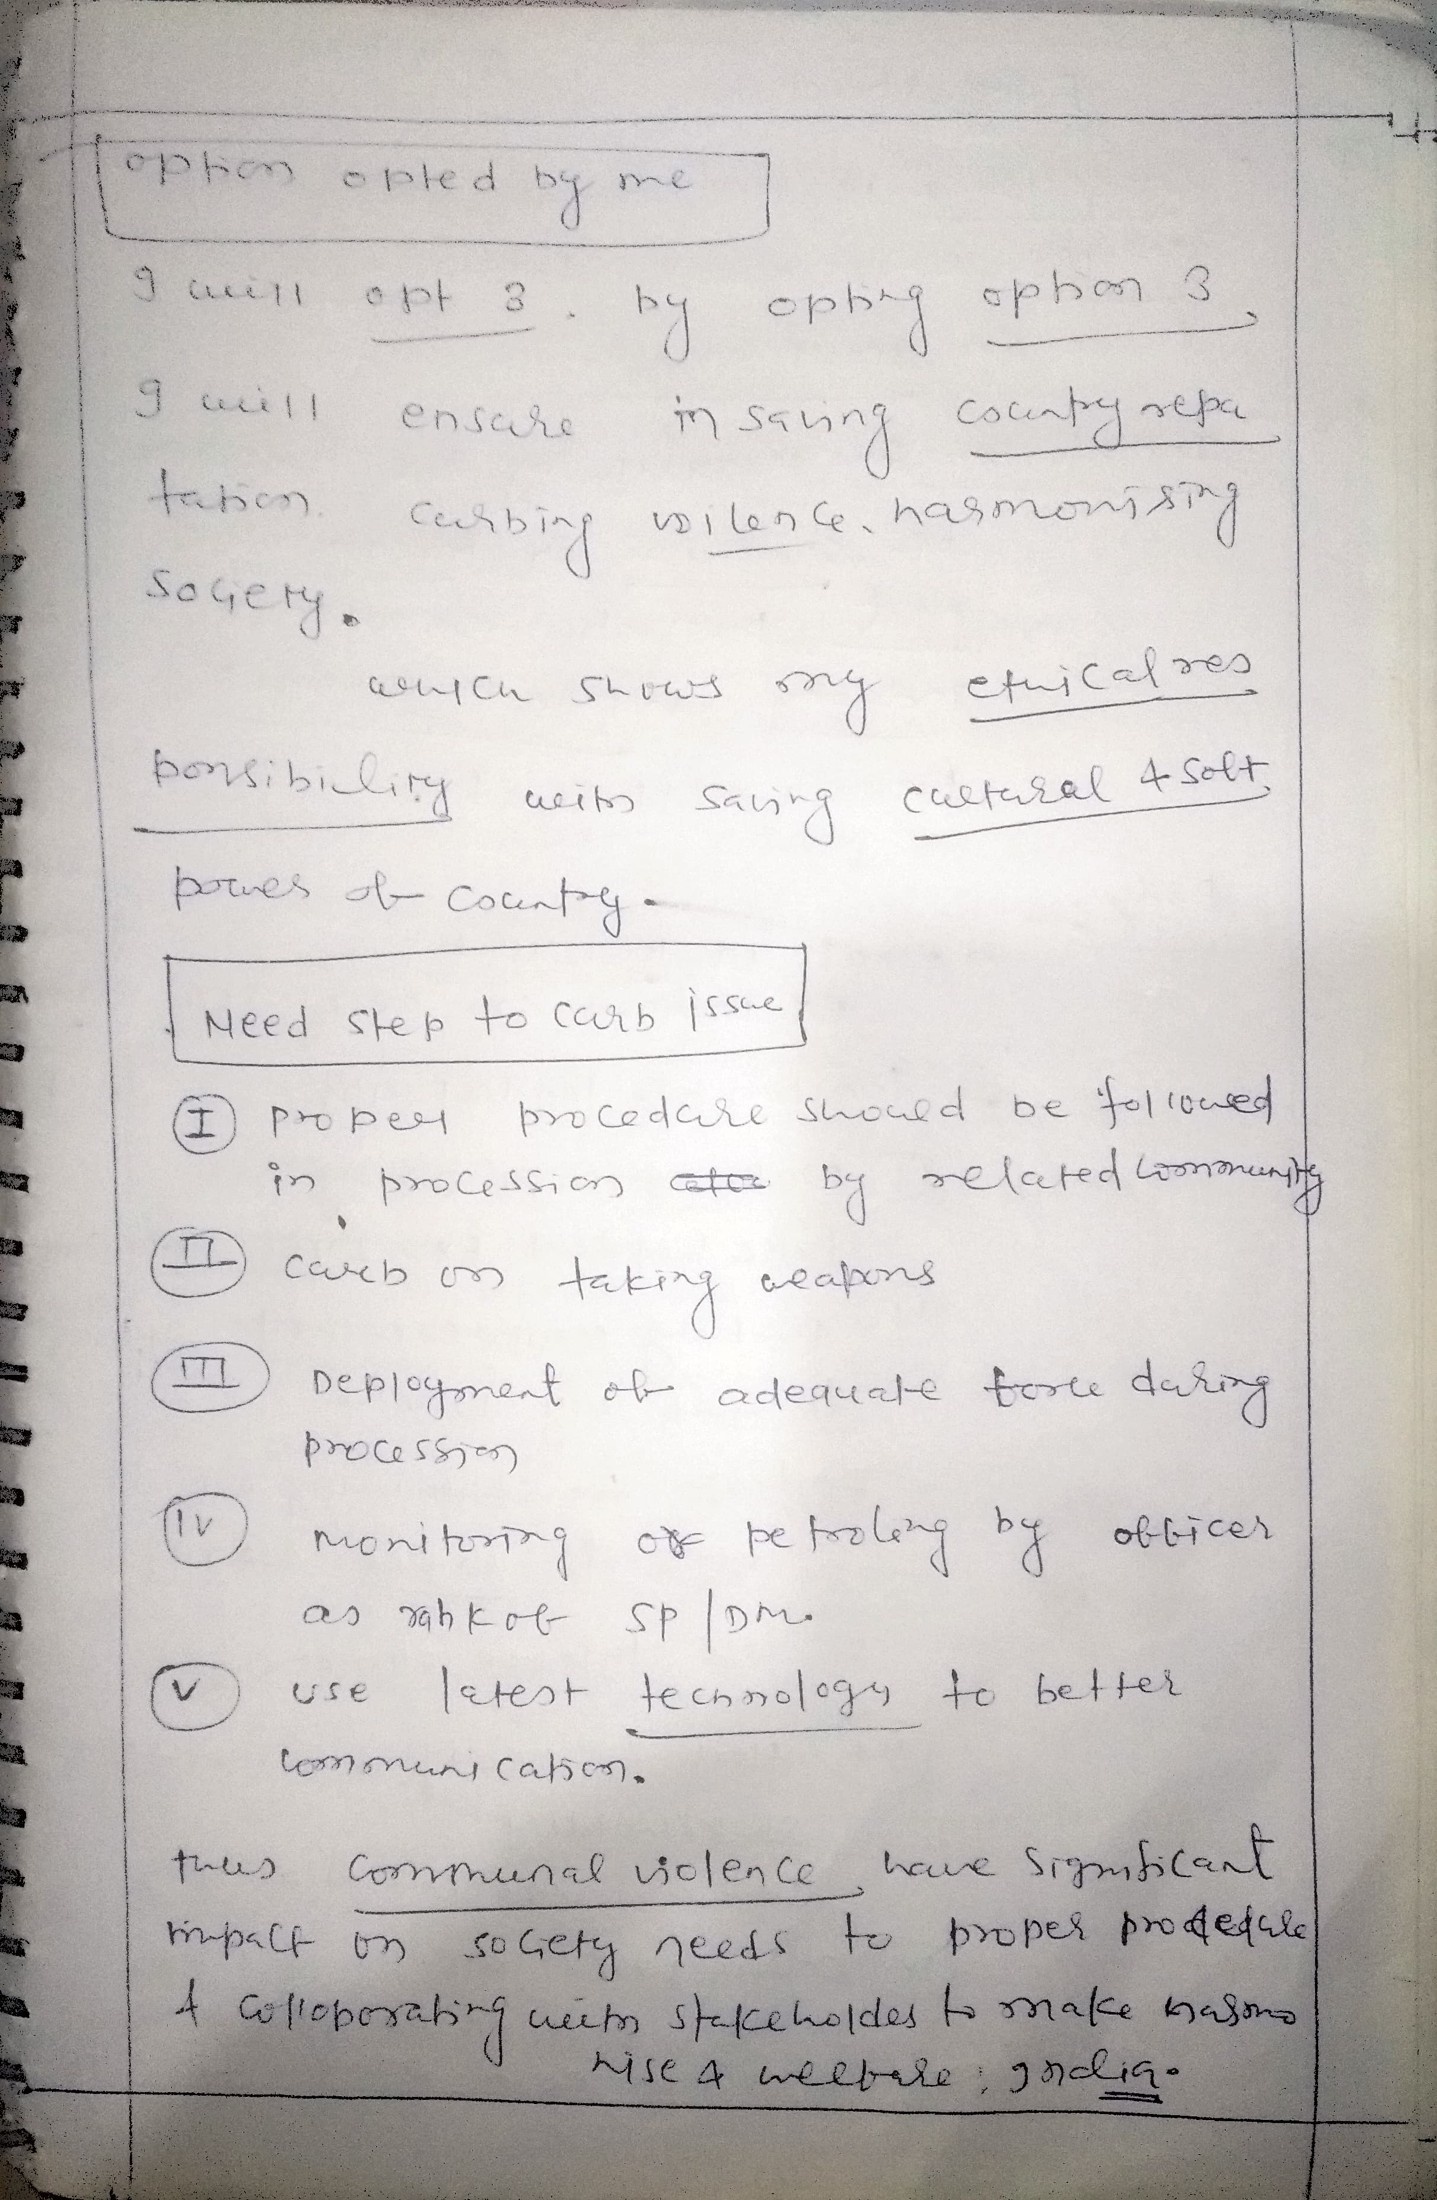 option opted by me
I will opt 3. by opting option 3,
I will ensure in saving country repu
tation. curbing voilence, harmonising
society.
which shows my ethical res
ponsibility with saving cultural & soft
power of country.
Need step to curb issue
I proper procedure should be followed
in procession by related community
II curb on taking weapons
III Deployment of adequate force during
procession
IV monitoring or petroling by officer
as rank of SP/DM.
V use latest technology to better
communication.
thus communal violence, have significant
impact on society needs to proper procedure
& colloporating with stakeholdes to make harmo
nise & welfare; India.